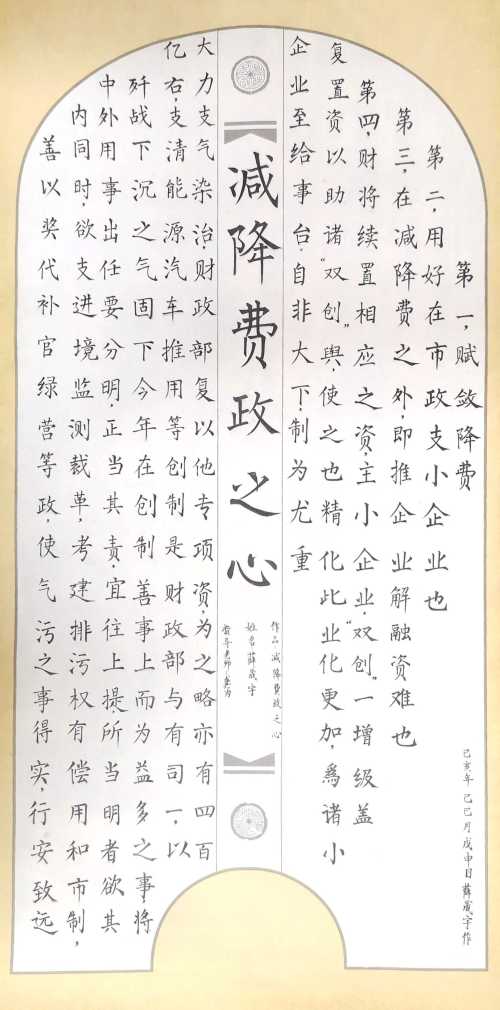 第一,赋敛降费
第二,用好在市政支小企业也
第三,在减降费之外,即推企业解融资难也
第四,财将续置相应之资,主小企业,“双创”一增级盖
复置资以助诸“双创”舆,使之也精化此业化更加,爲诸小
企业至给事台,自非大下,制为尤重
减降费政之心
作品 减降费政之心
姓名 薛晟宇
指导老师
大力支气染治,财政部复以他专项资,为之略亦有四百
亿右,支清能源汽车推用等创制是财政部与有司一,以
歼战下沉之气固下今年在创制善事上而为益多之事,将
中外用事出任要分明,正当其责,宜往上提,所当明者欲其
内同时,欲支进境监测裁革,考建排污权有偿用和市制,
善以奖代补官绿营等政,使气污之事得实,行安致远
己亥年 己巳月 戊申日 薛晟宇作